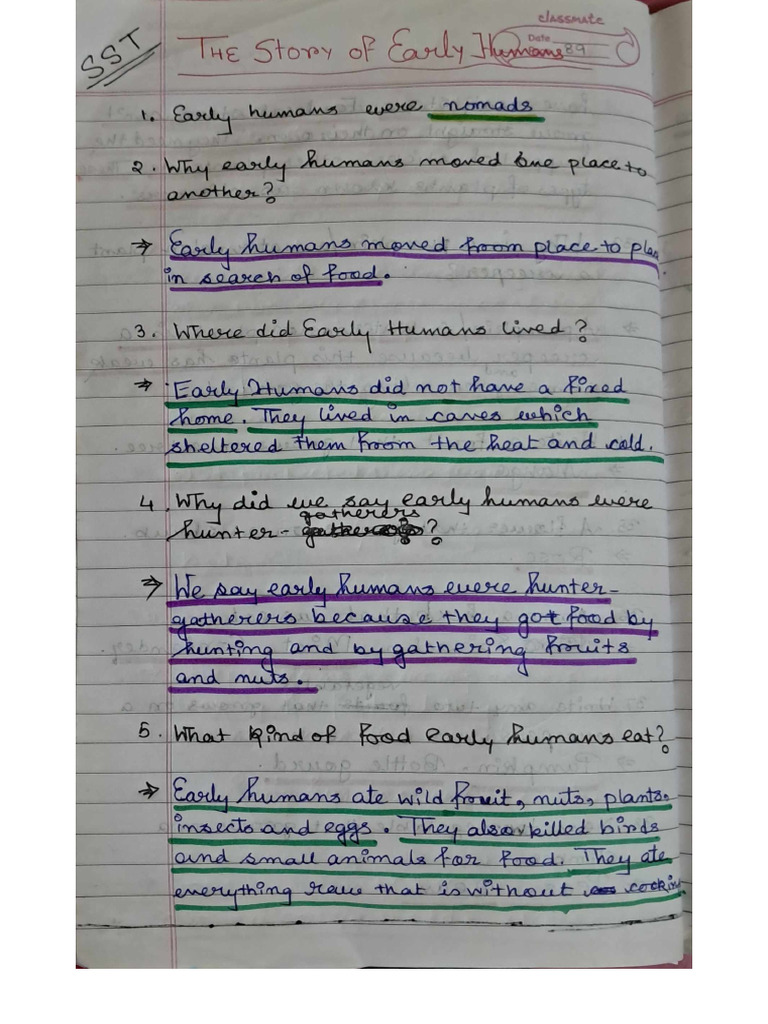 classmate
Date 89
SST
THE Story of Early Humans
1. Early humans were nomads
2. Why early humans moved one place to
another?
⇒ Early humans moved from place to place
in search of food.
3. Where did Early Humans lived?
⇒ Early Humans did not have a fixed
home. They lived in caves which
sheltered them from the heat and cold.
4. Why did we say early humans were
gatherers
hunter-?
⇒ We say early humans were hunter-
gatherers because they got food by
hunting and by gathering fruits
and nuts.
5. What kind of food early humans eat?
⇒ Early humans ate wild fruit, nuts, plants,
insects and eggs. They also killed birds
and small animals for food. They ate
everything raw that is without cooking